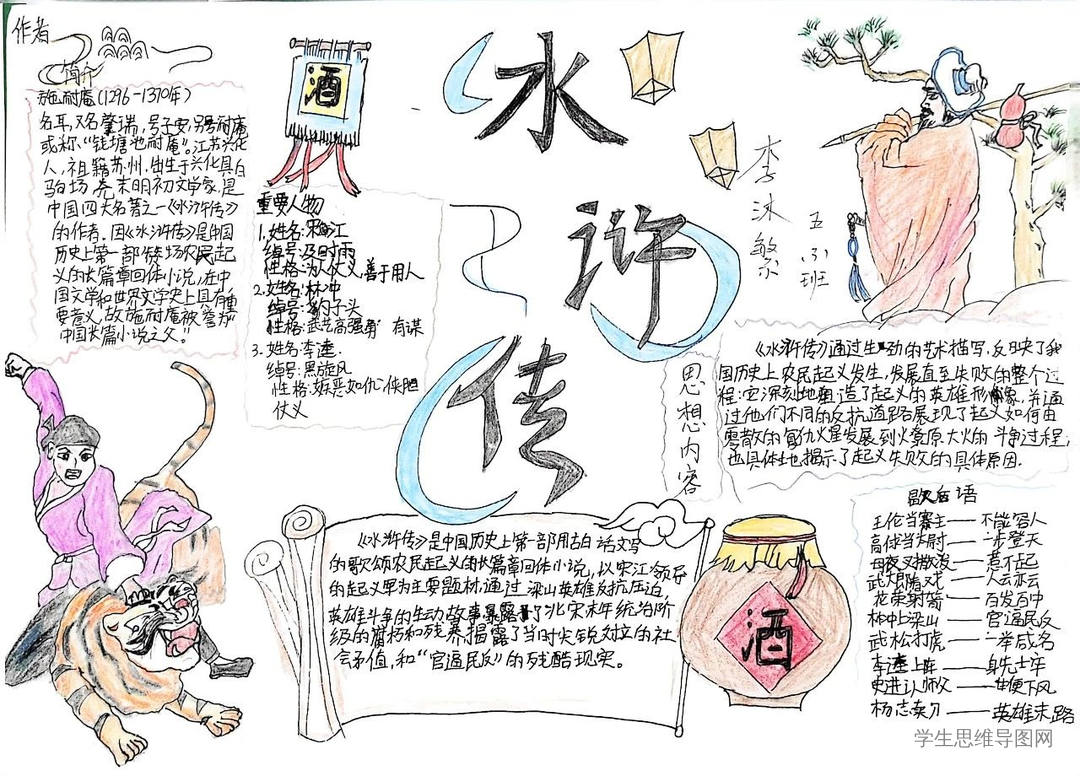 作者
简介
施耐庵(1296-1370年)
名耳,又名肇瑞,号子安,别号耐庵
或称、“钱塘施耐庵”。江苏兴化
人,祖籍苏州,出生于兴化县白
驹场 元末明初文学家,是
中国四大名著之一《水浒传》
的作者。因《水浒传》是中国
历史上第一部传扬农民起
义的长篇章回体小说,在中
国文学和世界文学史上具有重
要意义,故施耐庵被誉为
“中国长篇小说之父。”
酒
水
浒
传
李沐繁
五(3)班
重要人物
1.姓名:宋江
绰号:及时雨
性格:为人仗义,善于用人
2.姓名:林冲
绰号:豹子头
性格:武艺高强勇 有谋
3.姓名:李逵.
绰号:黑旋风
性格:嫉恶如仇,侠胆
仗义
思想内容
《水浒传》通过生动的艺术描写,反映了我
国历史上农民起义发生,发展直至失败的整个过
程;它深刻地塑造了起义的英雄形象,并通
过他们不同的反抗道路展现了起义如何由
零散的复仇火星发展到燎原大火的斗争过程,
也具体地揭示了起义失败的具体原因.
《水浒传》是中国历史上第一部用古白话文写
的歌颂农民起义的长篇章回体小说,以宋江领导
的起义军为主要题材,通过 梁山英雄反抗压迫,
英雄斗争的生动故事暴露了北宋末年统治阶
级的腐朽和残暴揭露了当时尖锐对立的社
会矛盾,和“官逼民反”的残酷现实。
酒
歇后语
王伦当寨主——不能容人
高俅当太尉——一步登天
母夜叉撒泼——惹不起
武大郎看戏——人云亦云
花荣射箭——百发百中
林冲上梁山——官逼民反
武松打虎——一举成名
李逵上阵——身先士卒
史进认师父——甘拜下风
杨志卖刀——英雄末路
学生思维导图网